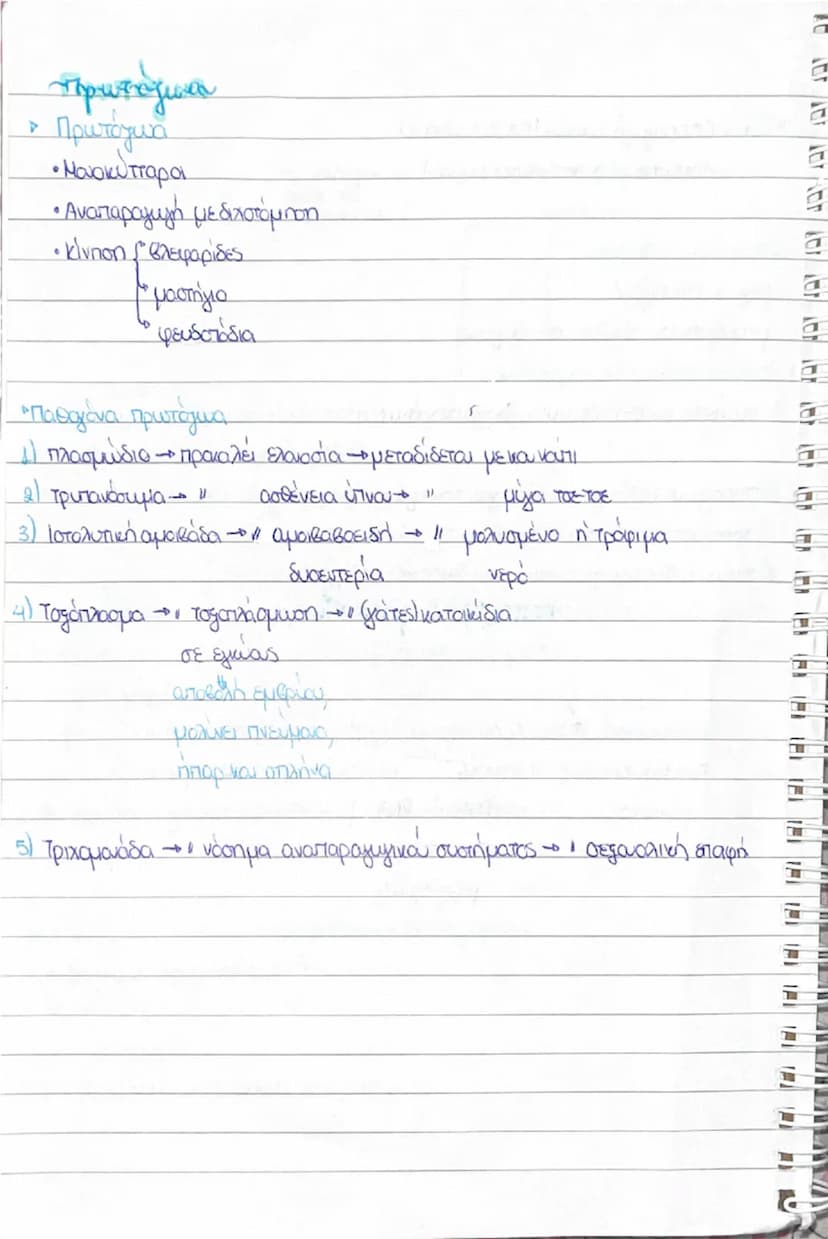 Πρωτόζωα
Πρωτόζωα
• Μονοκύτταροι
• Αναπαραγωγή με διχοτόμηση
• Κίνηση → βλεφαρίδες
→ μαστήγιο
→ ψευδοπόδια
Παθογόνα πρωτόζωα
1) Πλασμώδιο → προκαλεί ελονοσία → μεταδίδεται με κουνούπι
2) Τρυπανόσωμα → " ασθένεια ύπνου → " μύγα τσε τσε
3) Ιστολυτική αμοιβάδα → " αμοιβαδοειδή → " μολυσμένο ή τρόφιμα
δυσεντερία νερό
4) Τοξόπλασμα → " τοξοπλάσμωση → " (γάτες) κατοικίδια
σε εγκύους
αποβολή εμβρύου,
μολύνει πνεύμονα,
ήπαρ και σπλήνα
5) Τριχομονάδα → " νόσημα αναπαραγωγικού συστήματος → " σεξουαλική επαφή